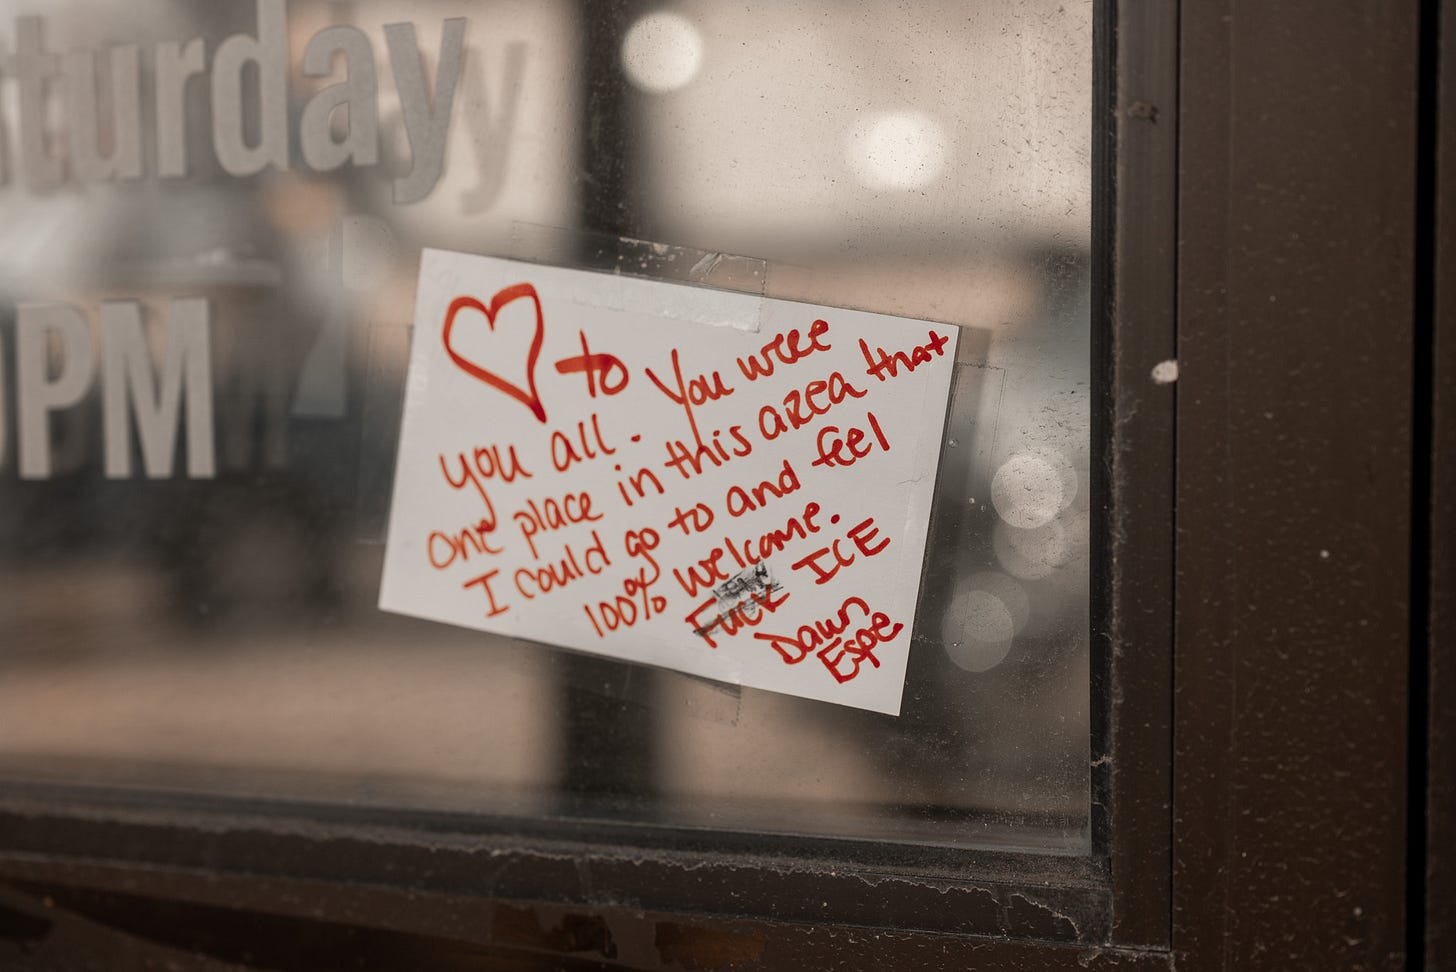 turday
PM
to
you all. You were
one place in this area that
I could go to and feel
100% welcome.
Fuck ICE
Dawn
Espe